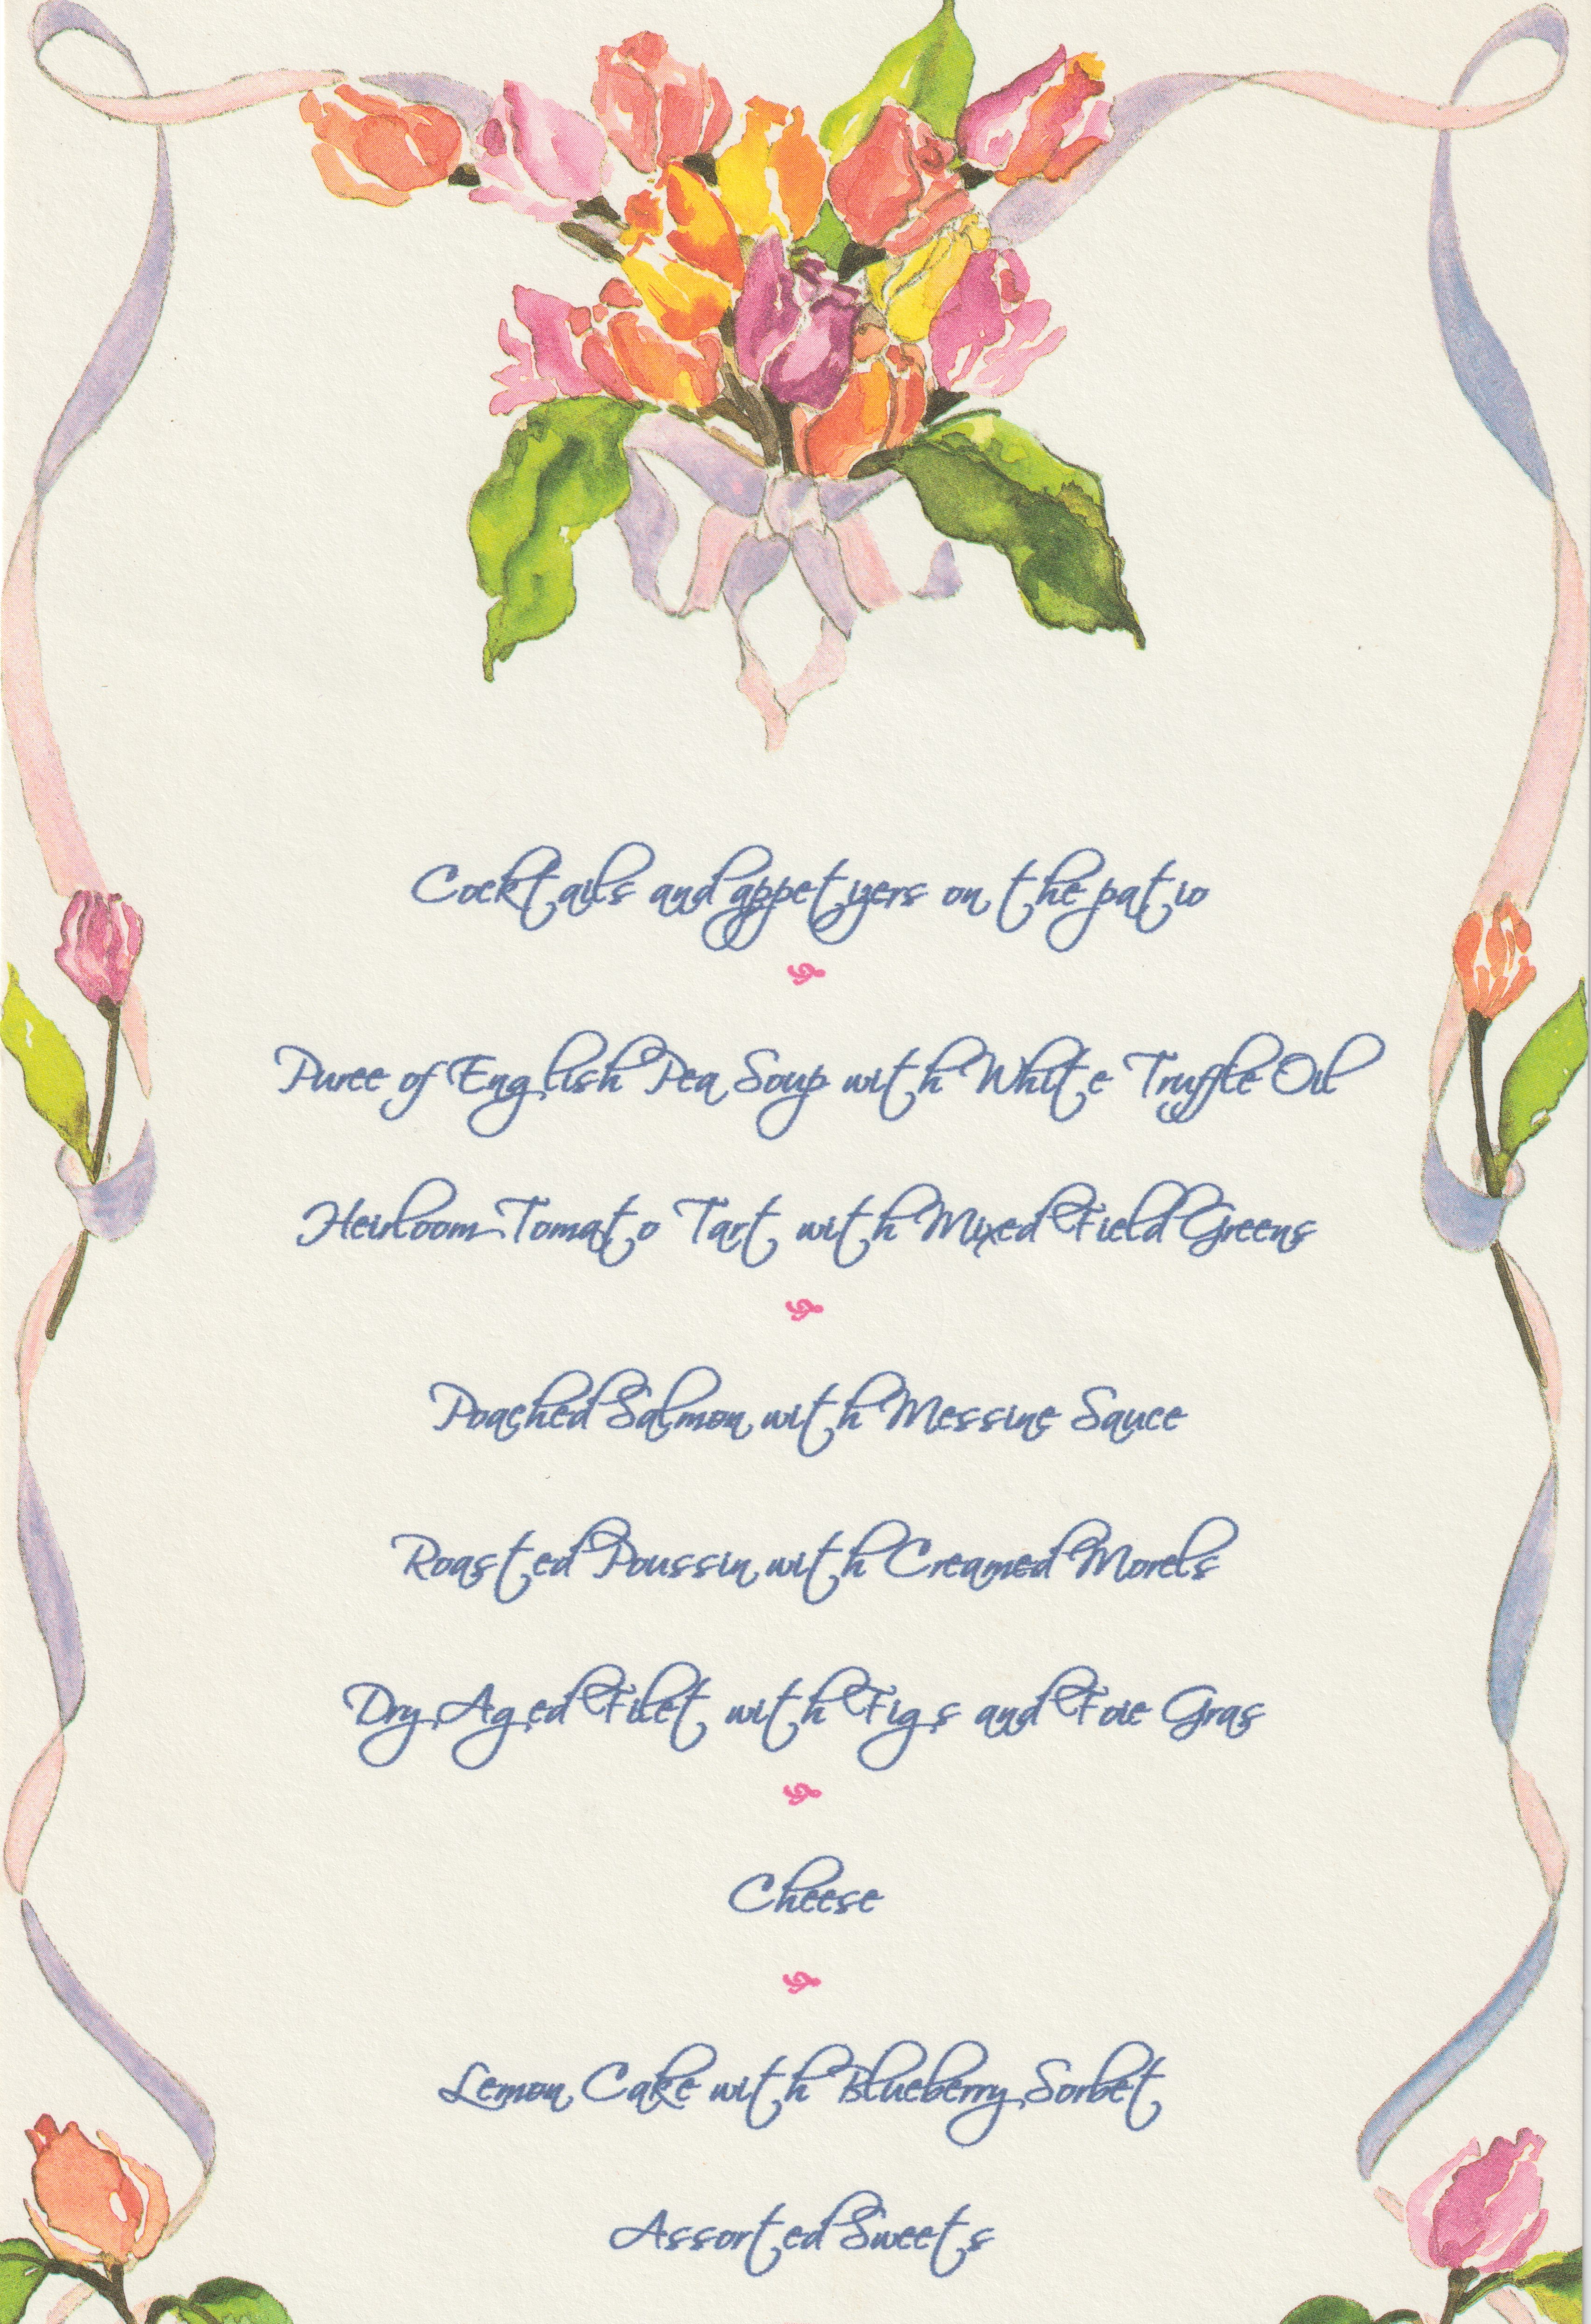 Cocktails and appetizers on the patio
Puree of English Pea Soup with White Truffle Oil
Heirloom Tomato Tart with Mixed Field Greens
Poached Salmon with Messine Sauce
Roasted Poussin with Creamed Morels
Dry Aged Filet with Figs and Foie Gras
Cheese
Lemon Cake with Blueberry Sorbet
Assorted Sweets